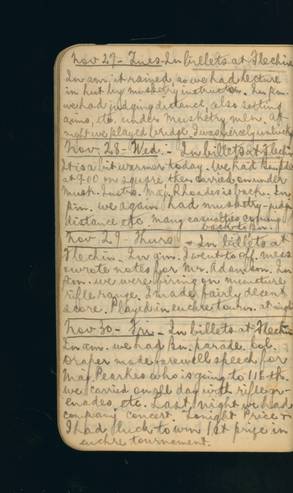 Nov 27 - Tues - In billets at Flechin
In am. it rained, so we had lecture
in hut by musketry instructor. In p.m.
we had judging distance, also setting
aims, etc. under musketry men. at
night we played bridge. I was merely unlucky
Nov. 28 - Wed: - In billets at Flechin
It is a bit warmer today. We had
at 9.00 on square then carried on under
musk. Inst. Maj. Rhoades is back. In
p.m. we again had musketry - judging
distance etc Many casualties coming
back to Bn.
Nov 29 - Thurs - In billets at
Flechin. In am. I went to off. mess
& wrote notes for Mr. Adamson. In
p.m. we were firing on miniature
rifle range. I made fairly decent
score. Played in euchre tourn. at night
Nov 30 - Fri - In billets at Flechin
In am. we had Bn. parade. Col.
Draper made farewell speech for
Maj. Pearkes who is going to 116th.
We carried on all day with rifle gr-
enades, etc. Last night we had
company concert. Tonight Price &
I had pluck to win 1st prize in
euchre tournament.